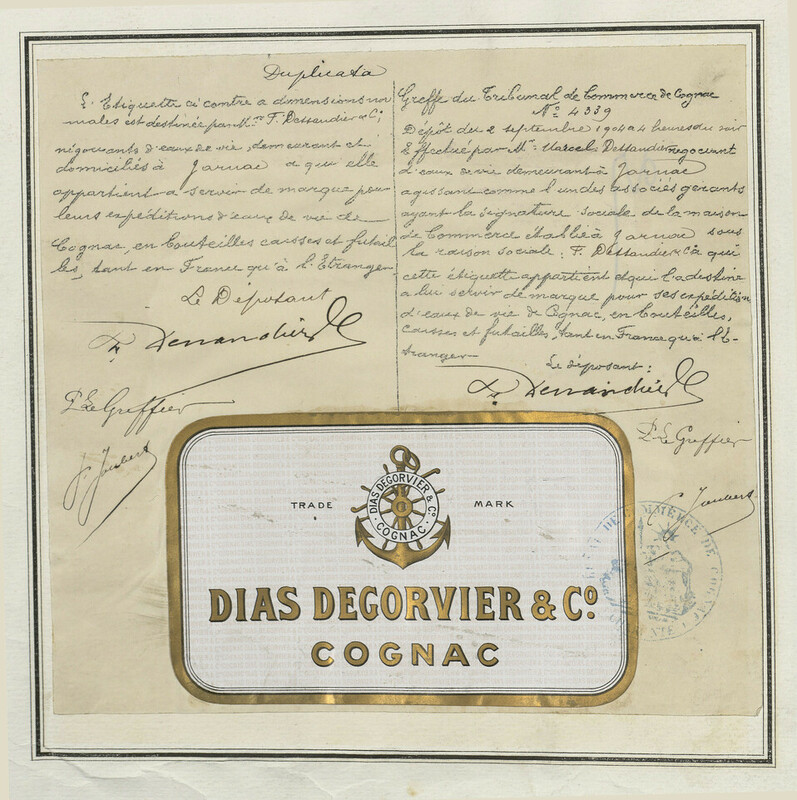 Duplicata
L'Etiquette ci contre a dimensions nor
males est destinée par Mrs F. Dessandier & Cie
négociants d'eaux de vie, demeurant et
domiciliés à Jarnac à qui elle
appartient à servir de marque pour
leurs expéditions d'eaux de vie de
Cognac, en bouteilles caisses et futail
les, tant en France qu'à l'Etranger.
Le Déposant
F. Dessandier & Cie
Pr Le Greffier
Joubert
Greffe du Tribunal de Commerce de Cognac
No 4339
Dépôt du 2 septembre 1904 à 4 heures du soir
Effectué par Mr Marcel Dessandier négociant
d'eaux de vie demeurant à Jarnac
agissant comme l'un des associés gérants
ayant la signature sociale de la maison
de Commerce établie à Jarnac sous
la raison sociale: F. Dessandier & Cie à qui
cette étiquette appartient et qui l'a destine
à lui servir de marque pour ses expéditions
d'eaux de vie de Cognac, en bouteilles,
caisses et futailles, tant en France qu'à l'E-
tranger
Le déposant:
F. Dessandier & Cie
Pr Le Greffier
Joubert
TRADE MARK
DIAS DEGORVIER & Co
COGNAC
DIAS DEGORVIER & Co
COGNAC
DE COMMERCE DE COGNAC